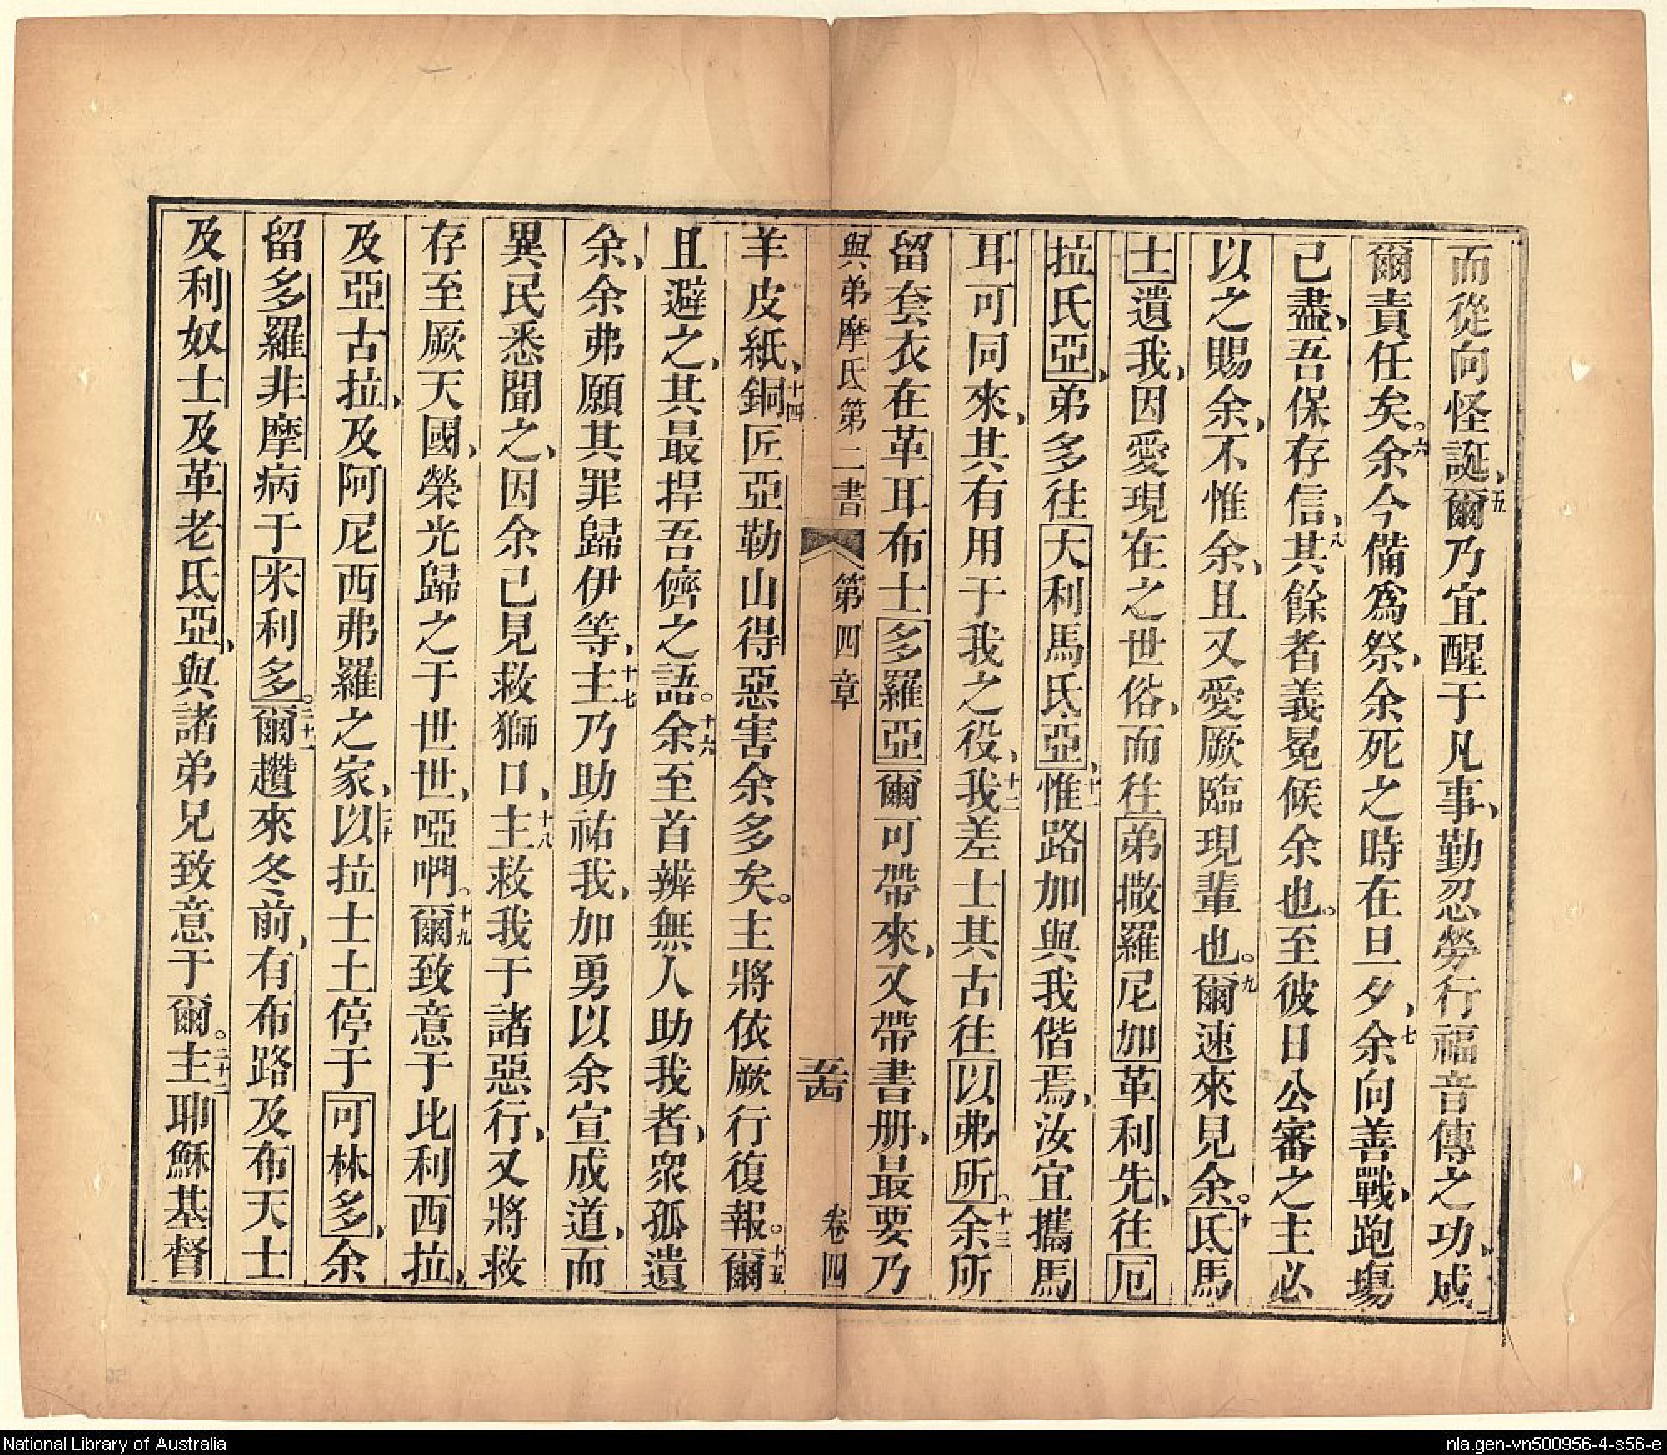 而從向怪誕、五爾乃宜醒于凡事、勤忍勞行福音傳之功、成
爾責任矣。六余今備為祭、余死之時在旦夕、七余向善戰、跑塲
己盡、吾保存信、八其餘者義冕候余也。至彼日公審之主必
以之賜余、不惟余、且又愛厥臨現輩也。九爾速來見余。十氐馬
士遺我、因愛現在之世俗、而往弟撒羅尼加革利先、往厄
拉氏亞、弟多往大利馬氏亞、十一惟路加與我偕焉、汝宜攜馬
耳可同來、其有用于我之役、十二我差士其古往以弗所、十三余所
留套衣在革耳布士多羅亞爾可帶來、又帶書册、最要乃
與弟摩氏第二書 第四章 五十四 卷四
羊皮紙、十四銅匠亞勒山得惡害余多矣。主將依厥行復報。十五爾
且避之、其最捍吾儕之語。十六余至首辨無人助我者、眾孤遺
余、余弗願其罪歸伊等、十七主乃助祐我、加勇以余宣成道、而
異民悉聞之、因余己見救獅口、十八主救我于諸惡行、又將救
存至厥天國、榮光歸之于世世、啞啊。十九爾致意于比利西拉、
及亞古拉、及阿尼西弗羅之家、二十以拉士土停于可林多、余
留多羅非摩病于米利多。二十一爾趲來冬前、有布路及布天士
及利奴士及革老氐亞、與諸弟兄致意于爾。二十二主耶穌基督
National Library of Australia
nla.gen-vn500956-4-s56-e